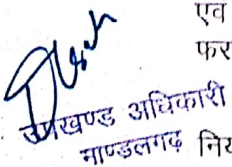 एव
फर
उपखण्ड अधिकारी
माण्डलगढ़ निर